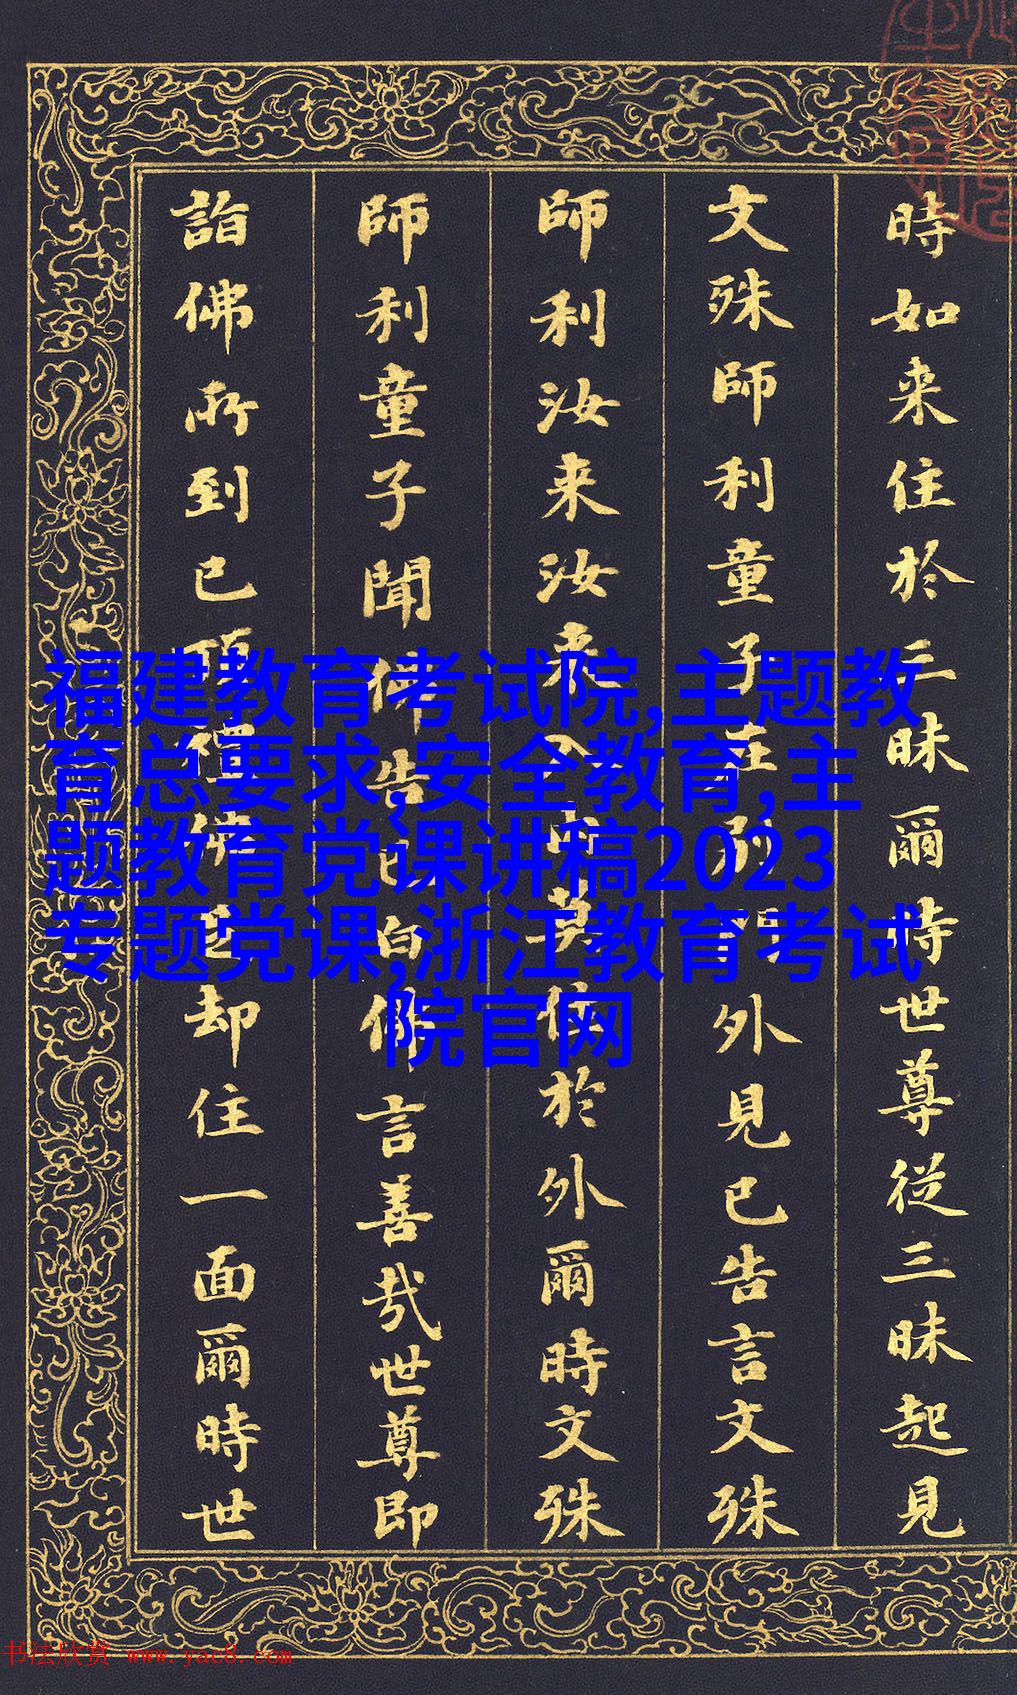 時如来住於三昧爾時世尊従三昧起見
文殊師利童子在別門外見已告言文殊
師利汝来汝来入内莫住於外爾時文殊
師利童子聞佛告已白佛言善哉世尊即
詣佛所到已頂禮佛足却住一面爾時世
福建教育考试院,主题教
育总要求,安全教育,主
题教育党课讲稿2023
专题党课,浙江教育考试
院官网
书法欣赏 www.yac8.com